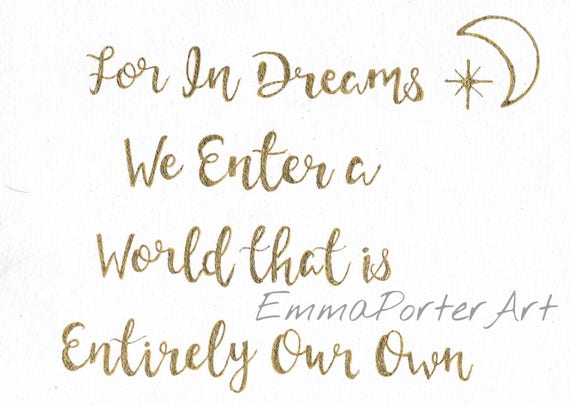 For In Dreams
We Enter a
World that is
EmmaPorter Art
Entirely Our Own